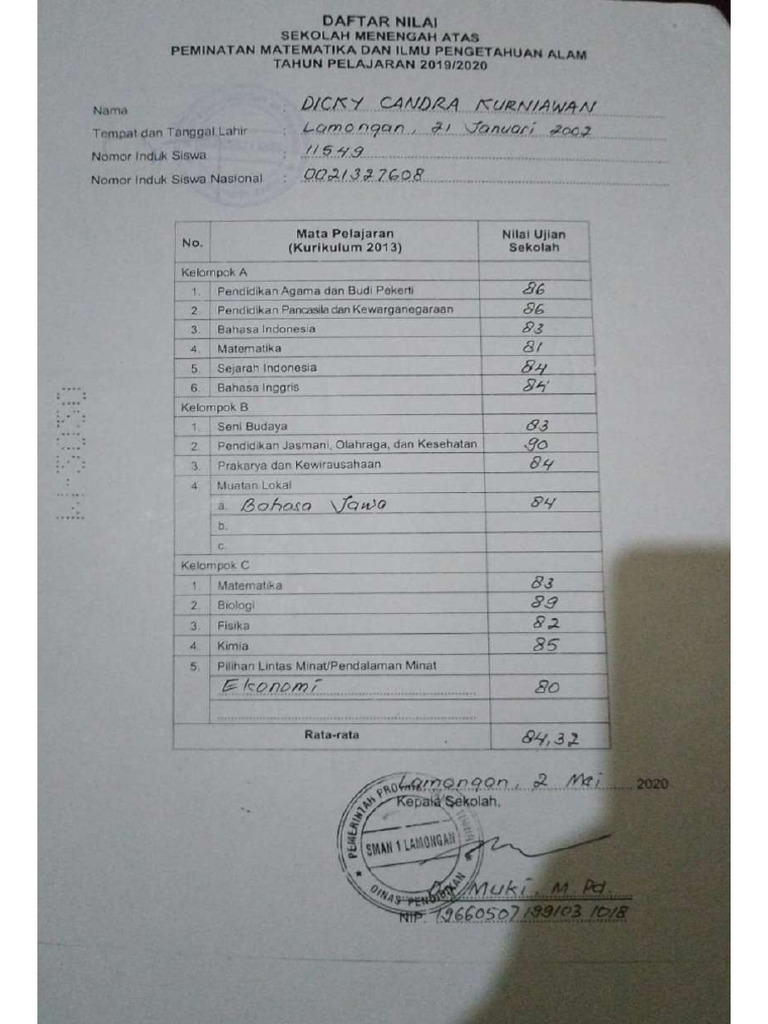 DAFTAR NILAI
SEKOLAH MENENGAH ATAS
PEMINATAN MATEMATIKA DAN ILMU PENGETAHUAN ALAM
TAHUN PELAJARAN 2019/2020
Nama : DICKY CANDRA KURNIAWAN
Tempat dan Tanggal Lahir : Lamongan, 21 Januari 2002
Nomor Induk Siswa : 11549
Nomor Induk Siswa Nasional : 0021327608
No. Mata Pelajaran (Kurikulum 2013) Nilai Ujian Sekolah
Kelompok A
1. Pendidikan Agama dan Budi Pekerti 86
2. Pendidikan Pancasila dan Kewarganegaraan 86
3. Bahasa Indonesia 83
4. Matematika 81
5. Sejarah Indonesia 84
6. Bahasa Inggris 84
Kelompok B
1. Seni Budaya 83
2. Pendidikan Jasmani, Olahraga, dan Kesehatan 90
3. Prakarya dan Kewirausahaan 84
4. Muatan Lokal
a. Bahasa Jawa 84
b.
c.
Kelompok C
1. Matematika 83
2. Biologi 89
3. Fisika 82
4. Kimia 85
5. Pilihan Lintas Minat/Pendalaman Minat
Ekonomi 80
Rata-rata 84,32
Lamongan, 2 Mei 2020
Kepala Sekolah,
PEMERINTAH
SMAN 1 LAMONGAN
DINAS PENDIDIKAN
Muki, M.Pd.
NIP. 19660507 199103 1018